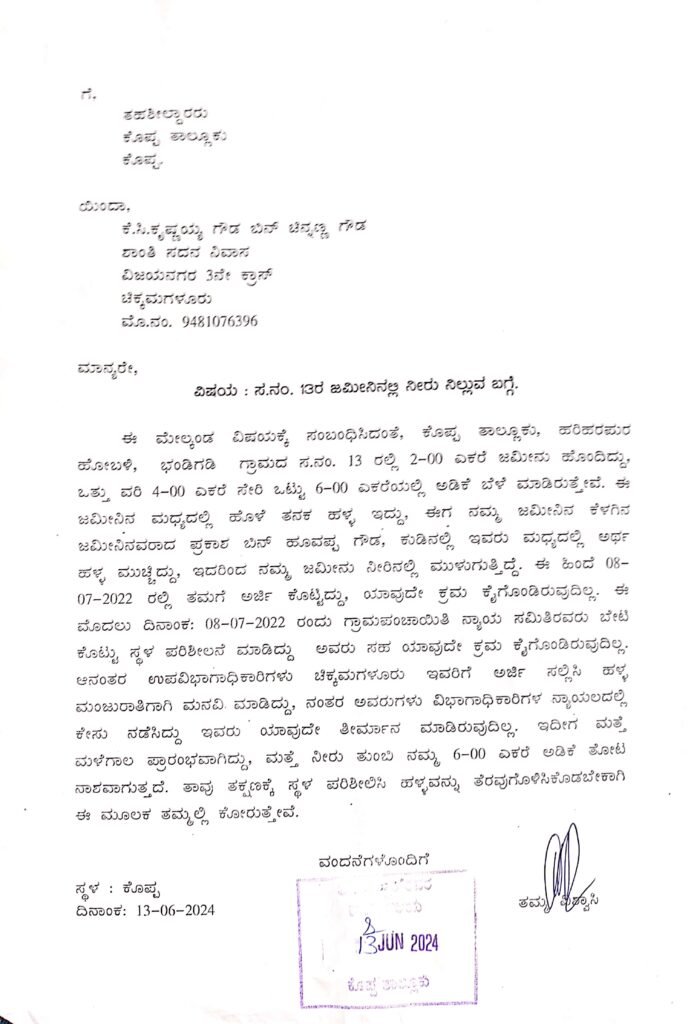 ಗೆ,
ತಹಶೀಲ್ದಾರರು
ಕೊಪ್ಪ ತಾಲ್ಲೂಕು
ಕೊಪ್ಪ.
ಯಿಂದಾ,
ಕೆ.ಸಿ.ಕೃಷ್ಣಯ್ಯ ಗೌಡ ಬಿನ್ ಚಿನ್ನಣ್ಣ ಗೌಡ
ಶಾಂತಿ ಸದನ ನಿವಾಸ
ವಿಜಯನಗರ 3ನೇ ಕ್ರಾಸ್
ಚಿಕ್ಕಮಗಳೂರು
ಮೊ.ನಂ. 9481076396
ಮಾನ್ಯರೇ,
ವಿಷಯ : ಸ.ನಂ. 13ರ ಜಮೀನಿನಲ್ಲಿ ನೀರು ನಿಲ್ಲುವ ಬಗ್ಗೆ.
ಈ ಮೇಲ್ಕಂಡ ವಿಷಯಕ್ಕೆ ಸಂಬಂಧಿಸಿದಂತೆ, ಕೊಪ್ಪ ತಾಲ್ಲೂಕು, ಹರಿಹರಪುರ
ಹೋಬಳಿ, ಭಂಡಿಗಡಿ ಗ್ರಾಮದ ಸ.ನಂ. 13 ರಲ್ಲಿ 2-00 ಎಕರೆ ಜಮೀನು ಹೊಂದಿದ್ದು,
ಒತ್ತು ವರಿ 4-00 ಎಕರೆ ಸೇರಿ ಒಟ್ಟು 6-00 ಎಕರೆಯಲ್ಲಿ ಅಡಿಕೆ ಬೆಳೆ ಮಾಡಿರುತ್ತೇವೆ. ಈ
ಜಮೀನಿನ ಮಧ್ಯದಲ್ಲಿ ಹೊಳೆ ತನಕ ಹಳ್ಳ ಇದ್ದು, ಈಗ ನಮ್ಮ ಜಮೀನಿನ ಕೆಳಗಿನ
ಜಮೀನಿನವರಾದ ಪ್ರಕಾಶ ಬಿನ್ ಹೂವಪ್ಪ ಗೌಡ, ಕುಡಿನಲ್ಲಿ ಇವರು ಮಧ್ಯದಲ್ಲಿ ಅರ್ಧ
ಹಳ್ಳ ಮುಚ್ಚಿದ್ದು, ಇದರಿಂದ ನಮ್ಮ ಜಮೀನು ನೀರಿನಲ್ಲಿ ಮುಳುಗುತ್ತಿದ್ದೆ. ಈ ಹಿಂದೆ 08-
07-2022 ರಲ್ಲಿ ತಮಗೆ ಅರ್ಜಿ ಕೊಟ್ಟಿದ್ದು, ಯಾವುದೇ ಕ್ರಮ ಕೈಗೊಂಡಿರುವುದಿಲ್ಲ. ಈ
ಮೊದಲು ದಿನಾಂಕ: 08-07-2022 ರಂದು ಗ್ರಾಮಪಂಚಾಯಿತಿ ನ್ಯಾಯ ಸಮಿತಿರವರು ಬೇಟಿ
ಕೊಟ್ಟು ಸ್ಥಳ ಪರಿಶೀಲನೆ ಮಾಡಿದ್ದು ಅವರು ಸಹ ಯಾವುದೇ ಕ್ರಮ ಕೈಗೊಂಡಿರುವುದಿಲ್ಲ.
ಆನಂತರ ಉಪವಿಭಾಗಾಧಿಕಾರಿಗಳು ಚಿಕ್ಕಮಗಳೂರು ಇವರಿಗೆ ಅರ್ಜಿ ಸಲ್ಲಿಸಿ ಹಳ್ಳ
ಮಂಜುರಾತಿಗಾಗಿ ಮನವಿ ಮಾಡಿದ್ದು, ನಂತರ ಅವರುಗಳು ವಿಭಾಗಾಧಿಕಾರಿಗಳ ನ್ಯಾಯಲದಲ್ಲಿ
ಕೇಸು ನಡೆಸಿದ್ದು ಇವರು ಯಾವುದೇ ತೀರ್ಮಾನ ಮಾಡಿರುವುದಿಲ್ಲ. ಇದೀಗ ಮತ್ತೆ
ಮಳೆಗಾಲ ಪ್ರಾರಂಭವಾಗಿದ್ದು, ಮತ್ತೆ ನೀರು ತುಂಬಿ ನಮ್ಮ 6-00 ಎಕರೆ ಅಡಿಕೆ ತೋಟ
ನಾಶವಾಗುತ್ತದೆ. ತಾವು ತಕ್ಷಣಕ್ಕೆ ಸ್ಥಳ ಪರಿಶೀಲಿಸಿ ಹಳ್ಳವನ್ನು ತೆರವುಗೊಳಿಸಿಕೊಡಬೇಕಾಗಿ
ಈ ಮೂಲಕ ತಮ್ಮಲ್ಲಿ ಕೋರುತ್ತೇವೆ.
ವಂದನೆಗಳೊಂದಿಗೆ
ಸ್ಥಳ : ಕೊಪ್ಪ
ದಿನಾಂಕ: 13-06-2024
ತಮ್ಮ ವಿಶ್ವಾಸಿ
13 JUN 2024
ಕೊಪ್ಪ ತಾಲ್ಲೂಕು